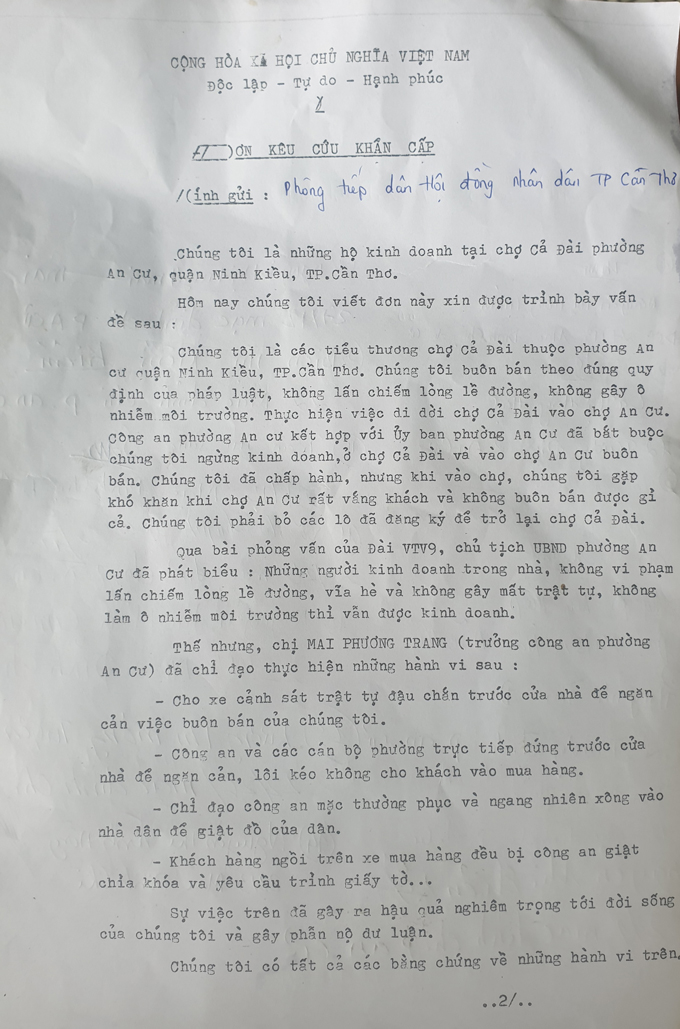 CỘNG HÒA XÃ HỘI CHỦ NGHĨA VIỆT NAM
Độc lập - Tự do - Hạnh phúc
ĐƠN KÊU CỨU KHẨN CẤP
Kính gửi : Phòng tiếp dân Hội đồng nhân dân TP Cần Thơ
Chúng tôi là những hộ kinh doanh tại chợ Cả Đài phường
An Cư, quận Ninh Kiều, TP.Cần Thơ.
Hôm nay chúng tôi viết đơn này xin được trình bày vấn
đề sau :
Chúng tôi là các tiểu thương chợ Cả Đài thuộc phường An
cư quận Ninh Kiều, TP.Cần Thơ. Chúng tôi buôn bán theo đúng quy
định của pháp luật, không lấn chiếm lòng lề đường, không gây ô
nhiễm môi trường. Thực hiện việc di dời chợ Cả Đài vào chợ An Cư.
Công an phường An cư kết hợp với Ủy ban phường An Cư đã bắt buộc
chúng tôi ngừng kinh doanh,ở chợ Cả Đài và vào chợ An Cư buôn
bán. Chúng tôi đã chấp hành, nhưng khi vào chợ, chúng tôi gặp
khó khăn khi chợ An Cư rất vắng khách và không buôn bán được gì
cả. Chúng tôi phải bỏ các lô đã đăng ký để trở lại chợ Cả Đài.
Qua bài phỏng vấn của Đài VTV9, chủ tịch UBND phường An
Cư đã phát biểu : Những người kinh doanh trong nhà, không vi phạm
lấn chiếm lòng lề đường, vĩa hè và không gây mất trật tự, không
làm ô nhiễm môi trường thì vẫn được kinh doanh.
Thế nhưng, chị MAI PHƯƠNG TRANG (trưởng công an phường
An Cư) đã chỉ đạo thực hiện những hành vi sau :
- Cho xe cảnh sát trật tự đậu chắn trước cửa nhà để ngăn
cản việc buôn bán của chúng tôi.
- Công an và các cán bộ phường trực tiếp đứng trước cửa
nhà để ngăn cản, lôi kéo không cho khách vào mua hàng.
- Chỉ đạo công an mặc thường phục và ngang nhiên xông vào
nhà dân để giật đồ của dân.
- Khách hàng ngồi trên xe mua hàng đều bị công an giật
chìa khóa và yêu cầu trình giấy tờ...
Sự việc trên đã gây ra hậu quả nghiêm trọng tới đời sống
của chúng tôi và gây phẫn nộ dư luận.
Chúng tôi có tất cả các bằng chứng về những hành vi trên.
..2/..